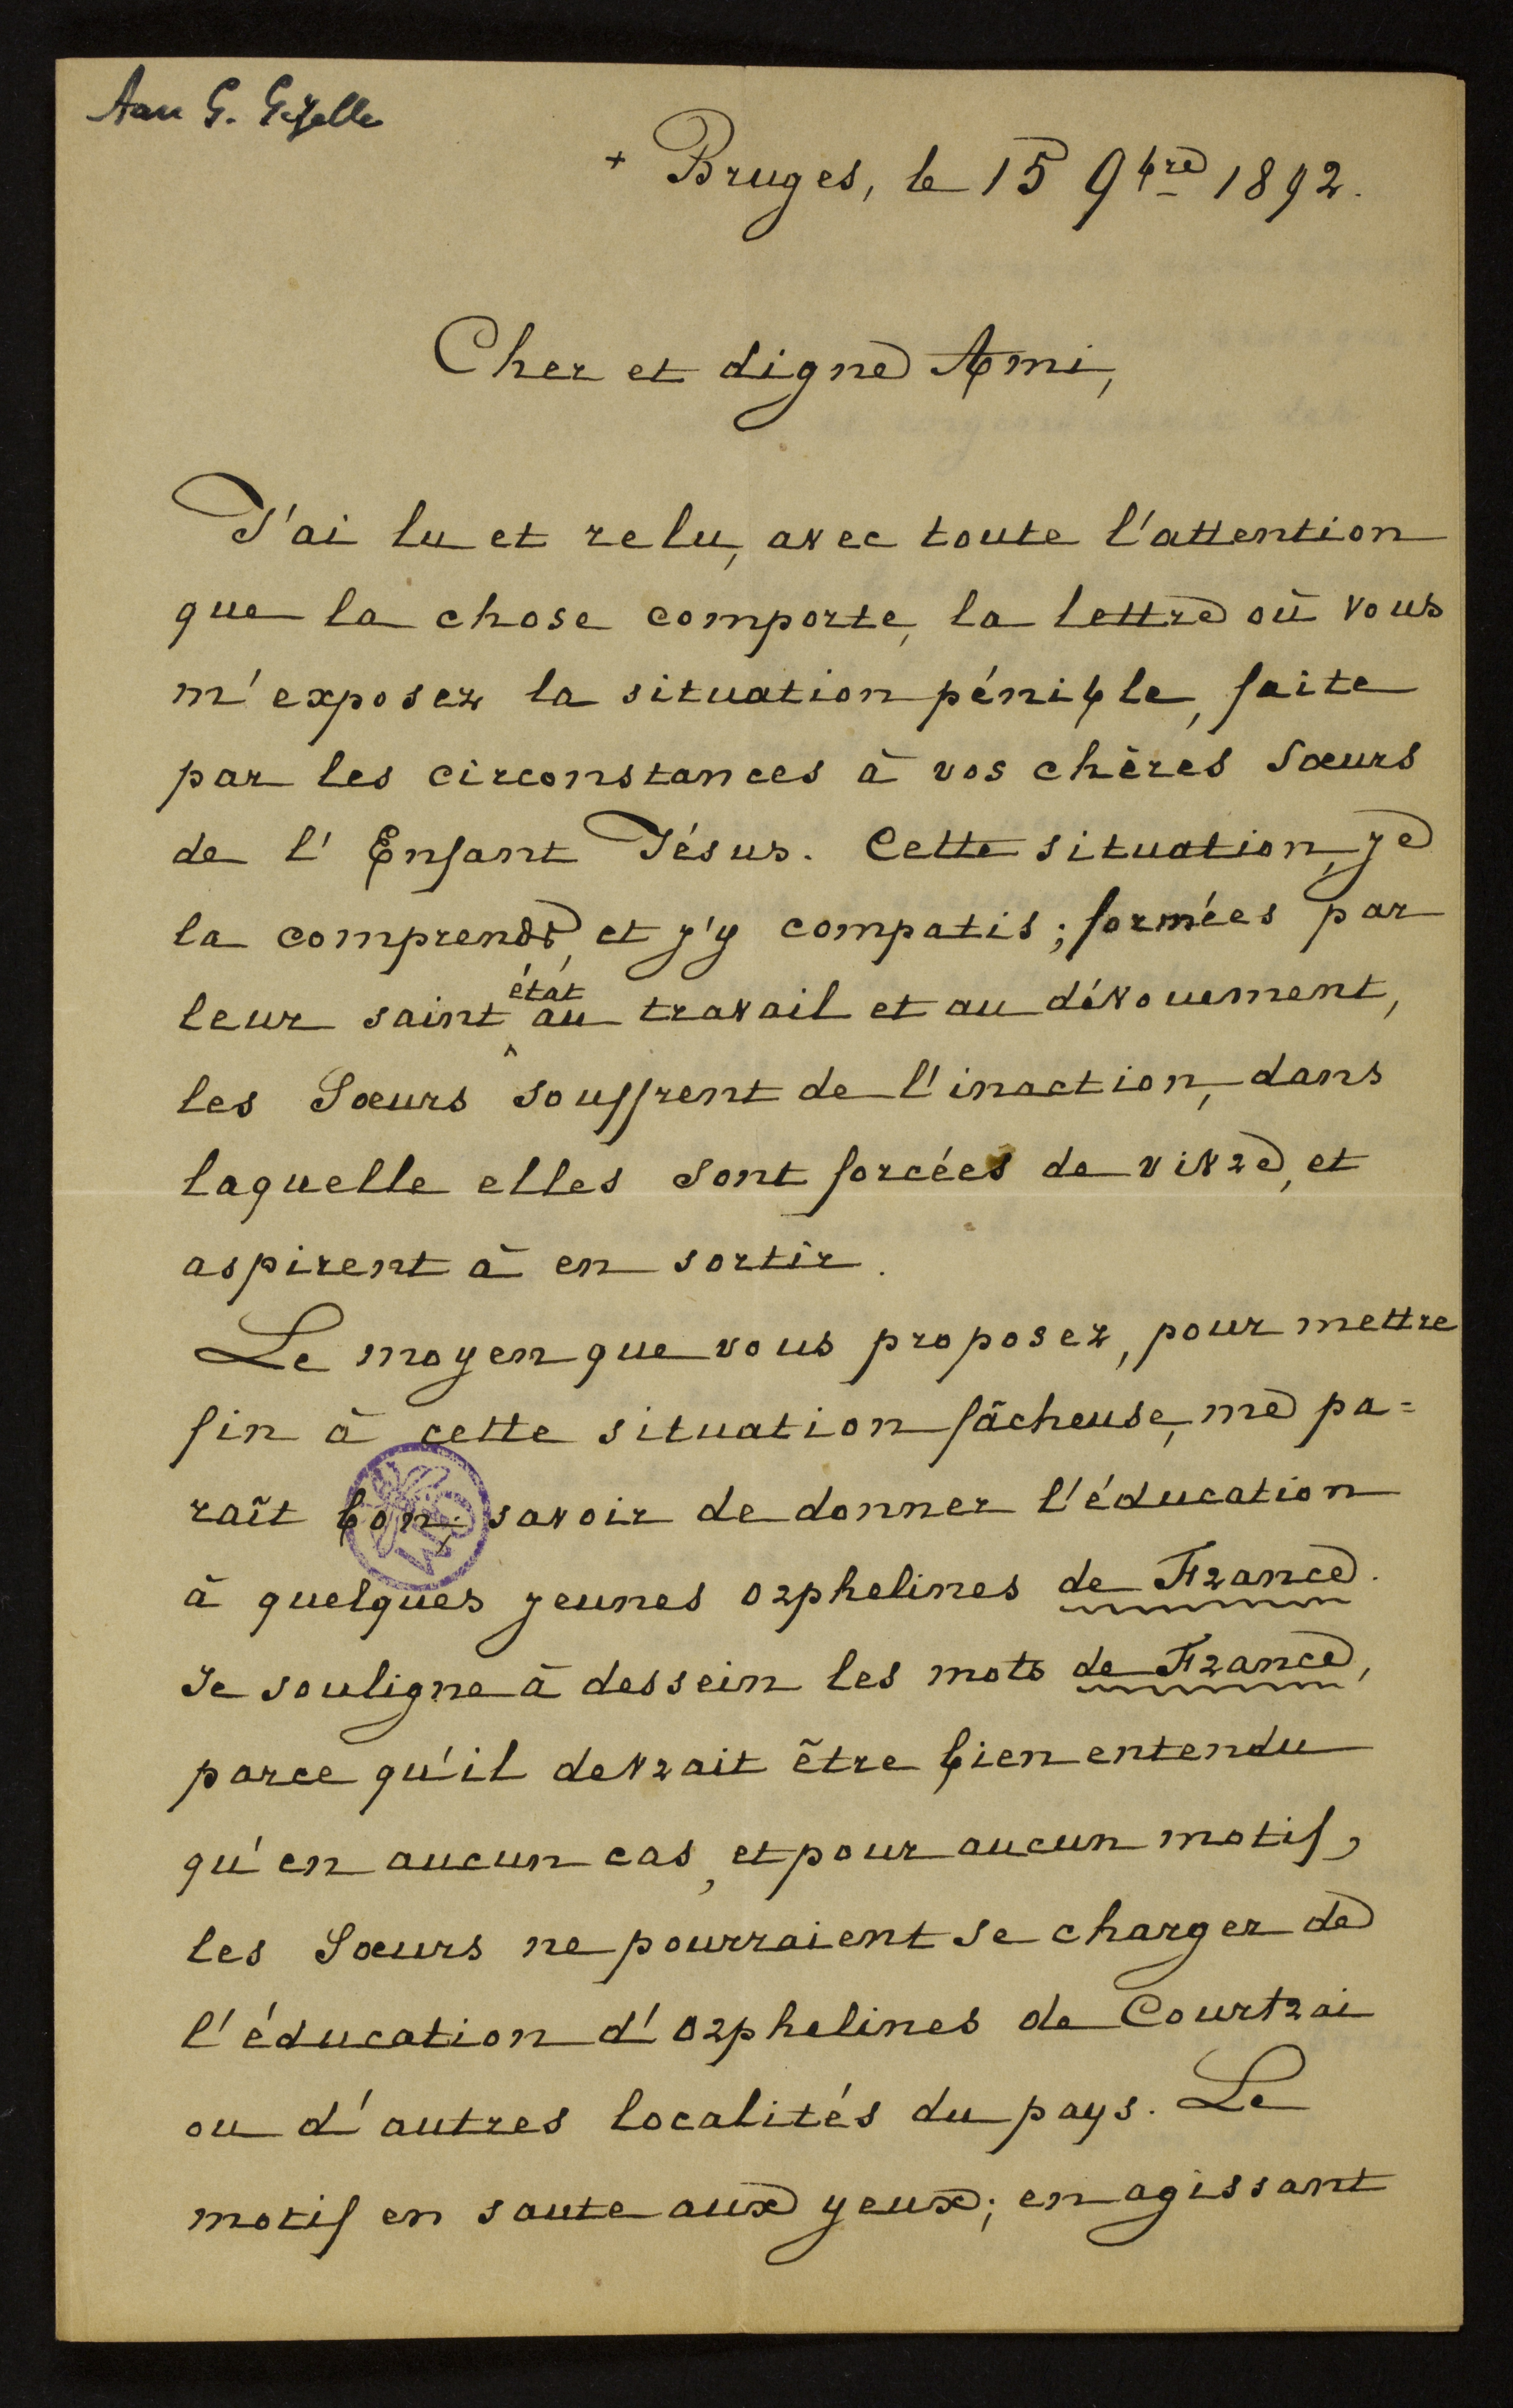 Aan G. Gezelle
+ Bruges, le 15 9bre 1892.
Cher et digne Ami,
J'ai lu et relu, avec toute l'attention
que la chose comporte, la lettre où vous
m'exposez la situation pénible, faite
par les circonstances à vos chères Sœurs
de l'Enfant Jésus. Cette situation, je
la comprends, et j'y compatis; formées par
leur saint état au travail et au dévouement,
les Sœurs souffrent de l'inaction, dans
laquelle elles sont forcées de vivre, et
aspirent à en sortir.
Le moyen que vous proposez, pour mettre
fin à cette situation fâcheuse, me pa=
raît bon; savoir de donner l'éducation
à quelques jeunes orphelines de France.
Je souligne à dessein les mots de France,
parce qu'il devrait être bien entendu
qu'en aucun cas, et pour aucun motif,
les Sœurs ne pourraient se charger de
l'éducation d'orphelines de Courtrai
ou d'autres localités du pays. Le
motif en saute aux yeux; en agissant